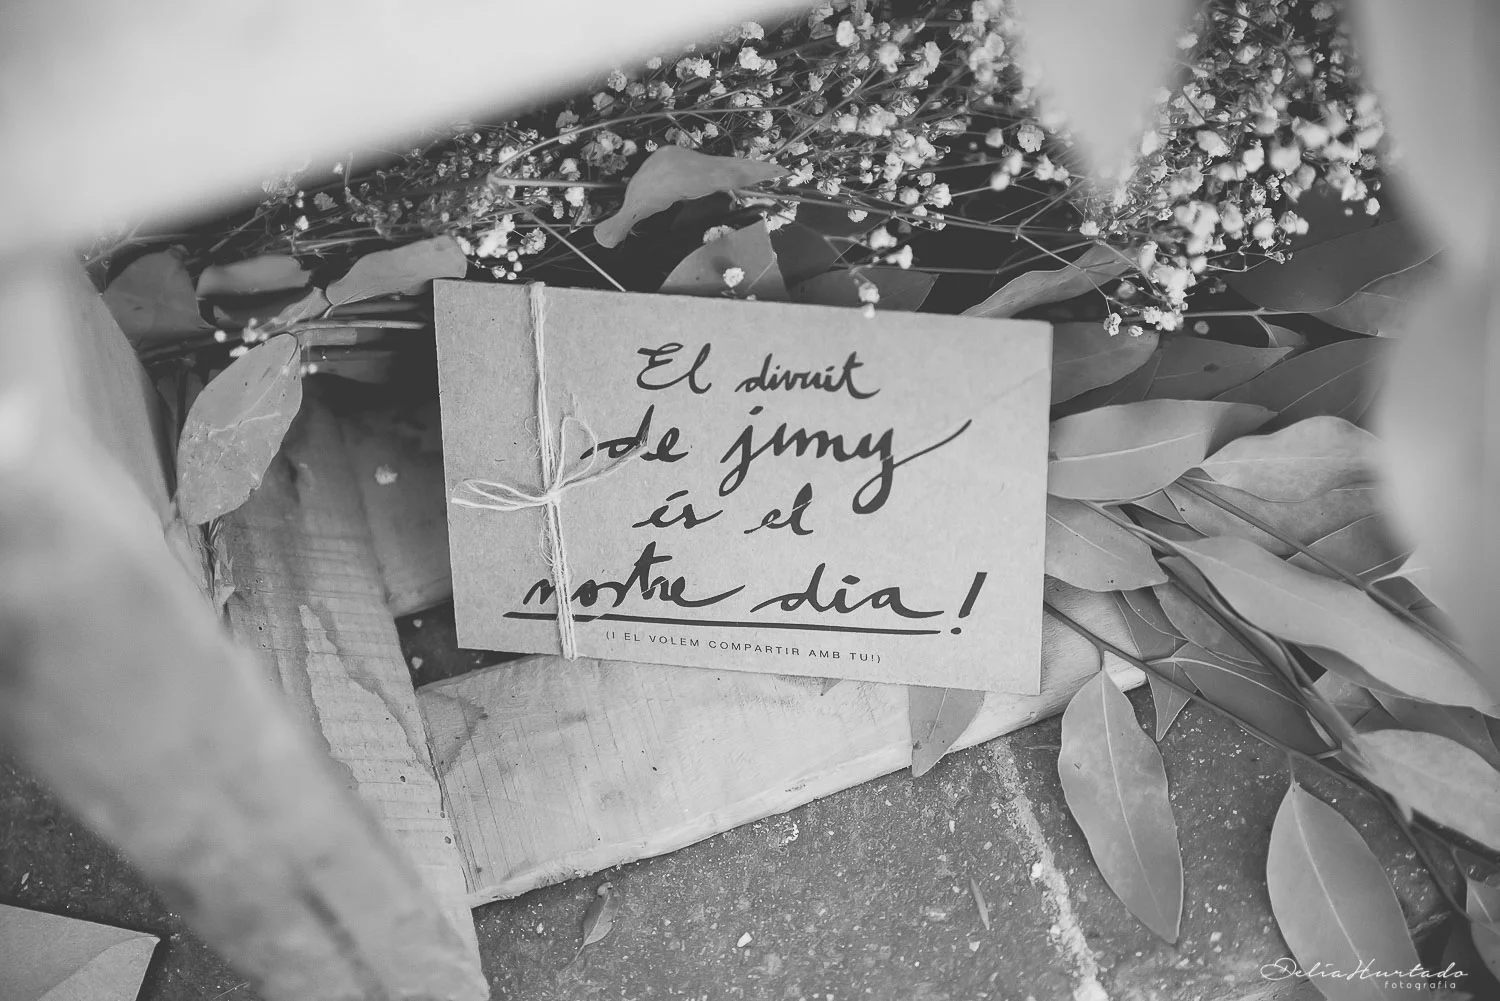 El divuit
de juny
és el
nostre dia!
(I EL VOLEM COMPARTIR AMB TU!)
Delia Hurtado
fotografía